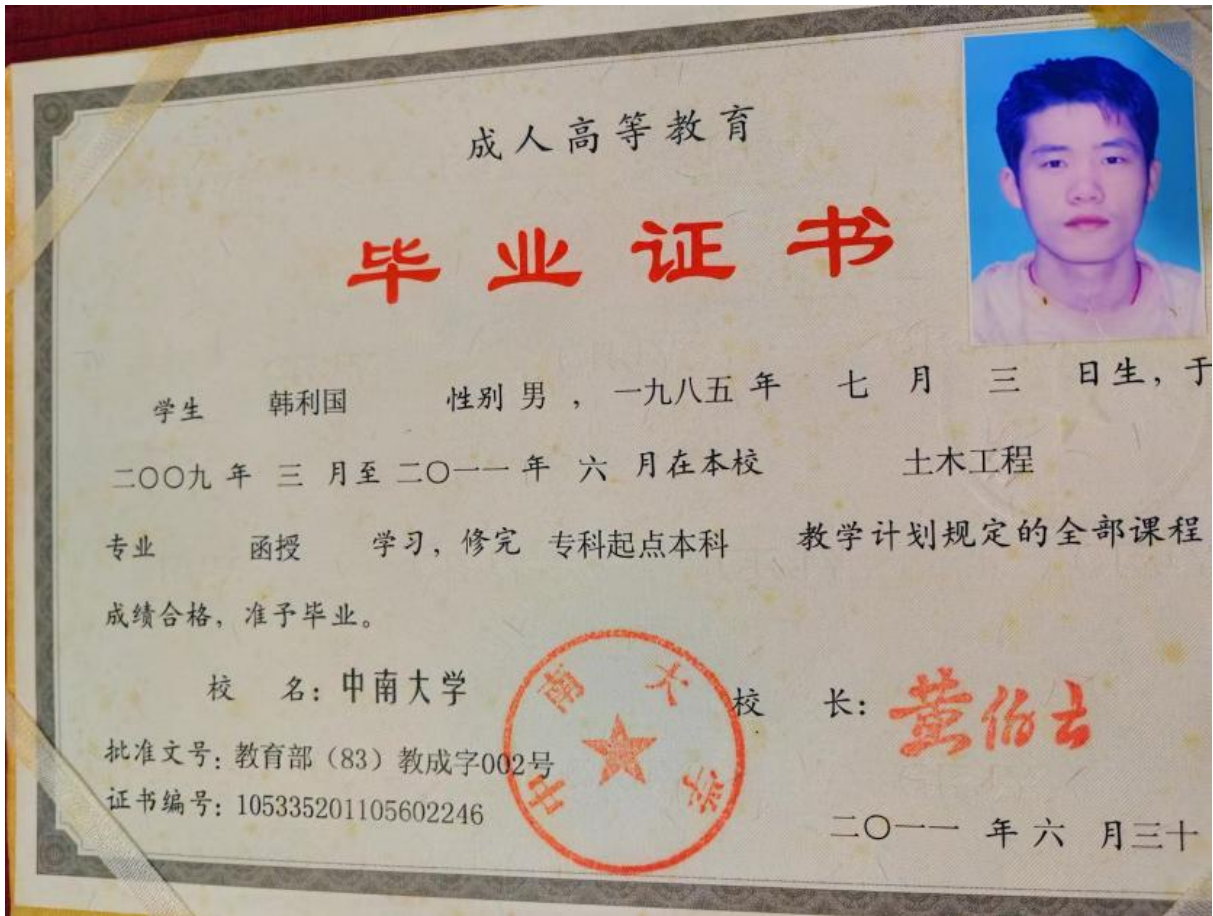 成人高等教育
毕业证书
学生 韩利国 性别 男 ， 一九八五 年 七 月 三 日生，于
二〇〇九 年 三 月至 二〇一一 年 六 月在本校 土木工程
专业 函授 学习，修完 专科起点本科 教学计划规定的全部课程
成绩合格，准予毕业。
校 名：中南大学 校 长：黄伯云
中南大学
批准文号：教育部（83）教成字002号
证书编号：105335201105602246
二〇一一 年 六 月三十